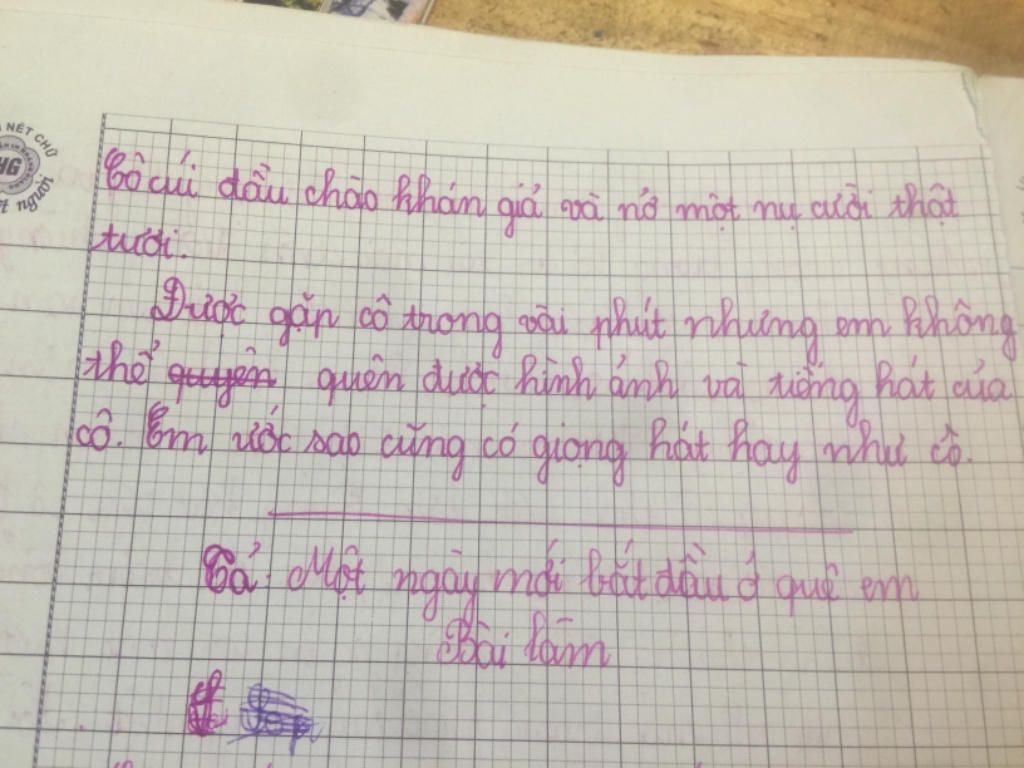 NÉT CHỮ
NG
ết người
Cô cúi đầu chào khán giả và nở một nụ cười thật
tươi.
Được gặp cô trong vài phút nhưng em không
thể quyên quên được hình ảnh và tiếng hát của
cô. Em ước sao cũng có giọng hát hay như cô.
Tả: Một ngày mới bắt đầu ở quê em
Bài làm